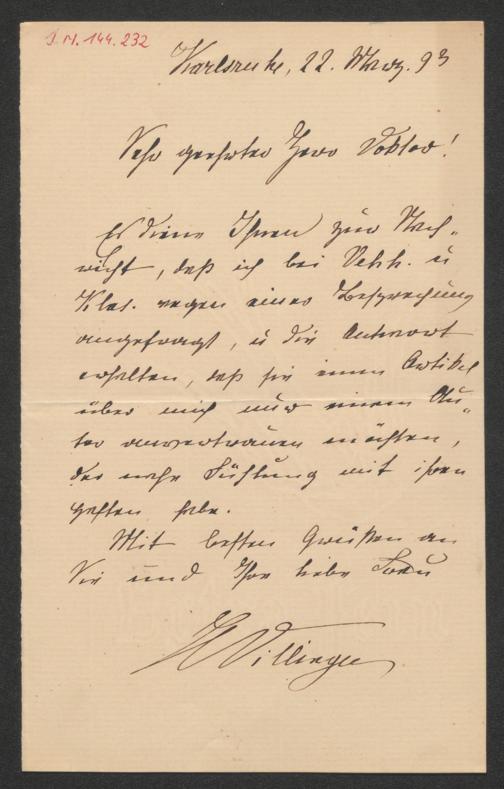 J.N. 144.232
Karlsruhe, 22. März. 93
Sehr geehrter Herr Doktor!
Es diene Ihnen zur Nach-
richt, daß ich bei Velh. u
Klas. wegen einer Besprechung
angefragt, u die Antwort
erhalten, daß sie einen Artikel
über mich nur einem Au-
tor anvertrauen möchten,
der mehr Fühlung mit ihren
Heften habe.
Mit besten Grüßen an
Sie und Ihre liebe Frau
H Villinger